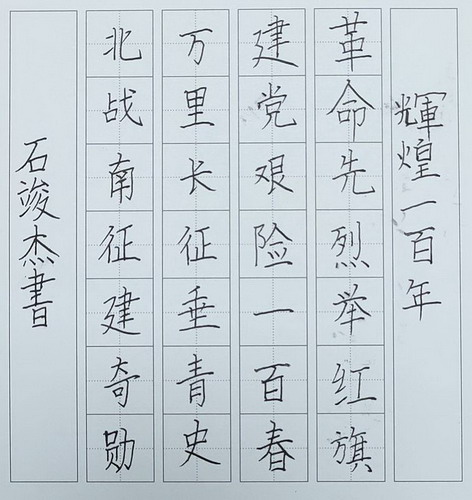 輝煌一百年
革命先烈举红旗
建党艰险一百春
万里长征垂青史
北战南征建奇勋
石竣杰書